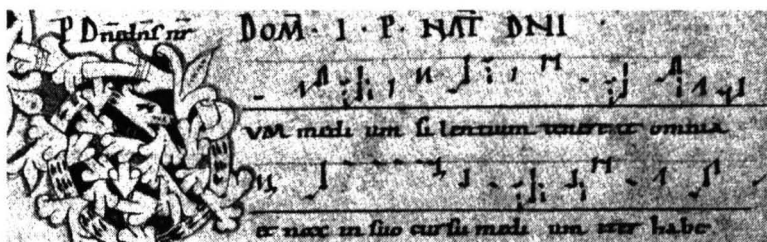 DOM̄ · I · P · NAT̄ DNI
VM medi um si lentium tenerent omnia
et nox in suo cursu medi um iter habe